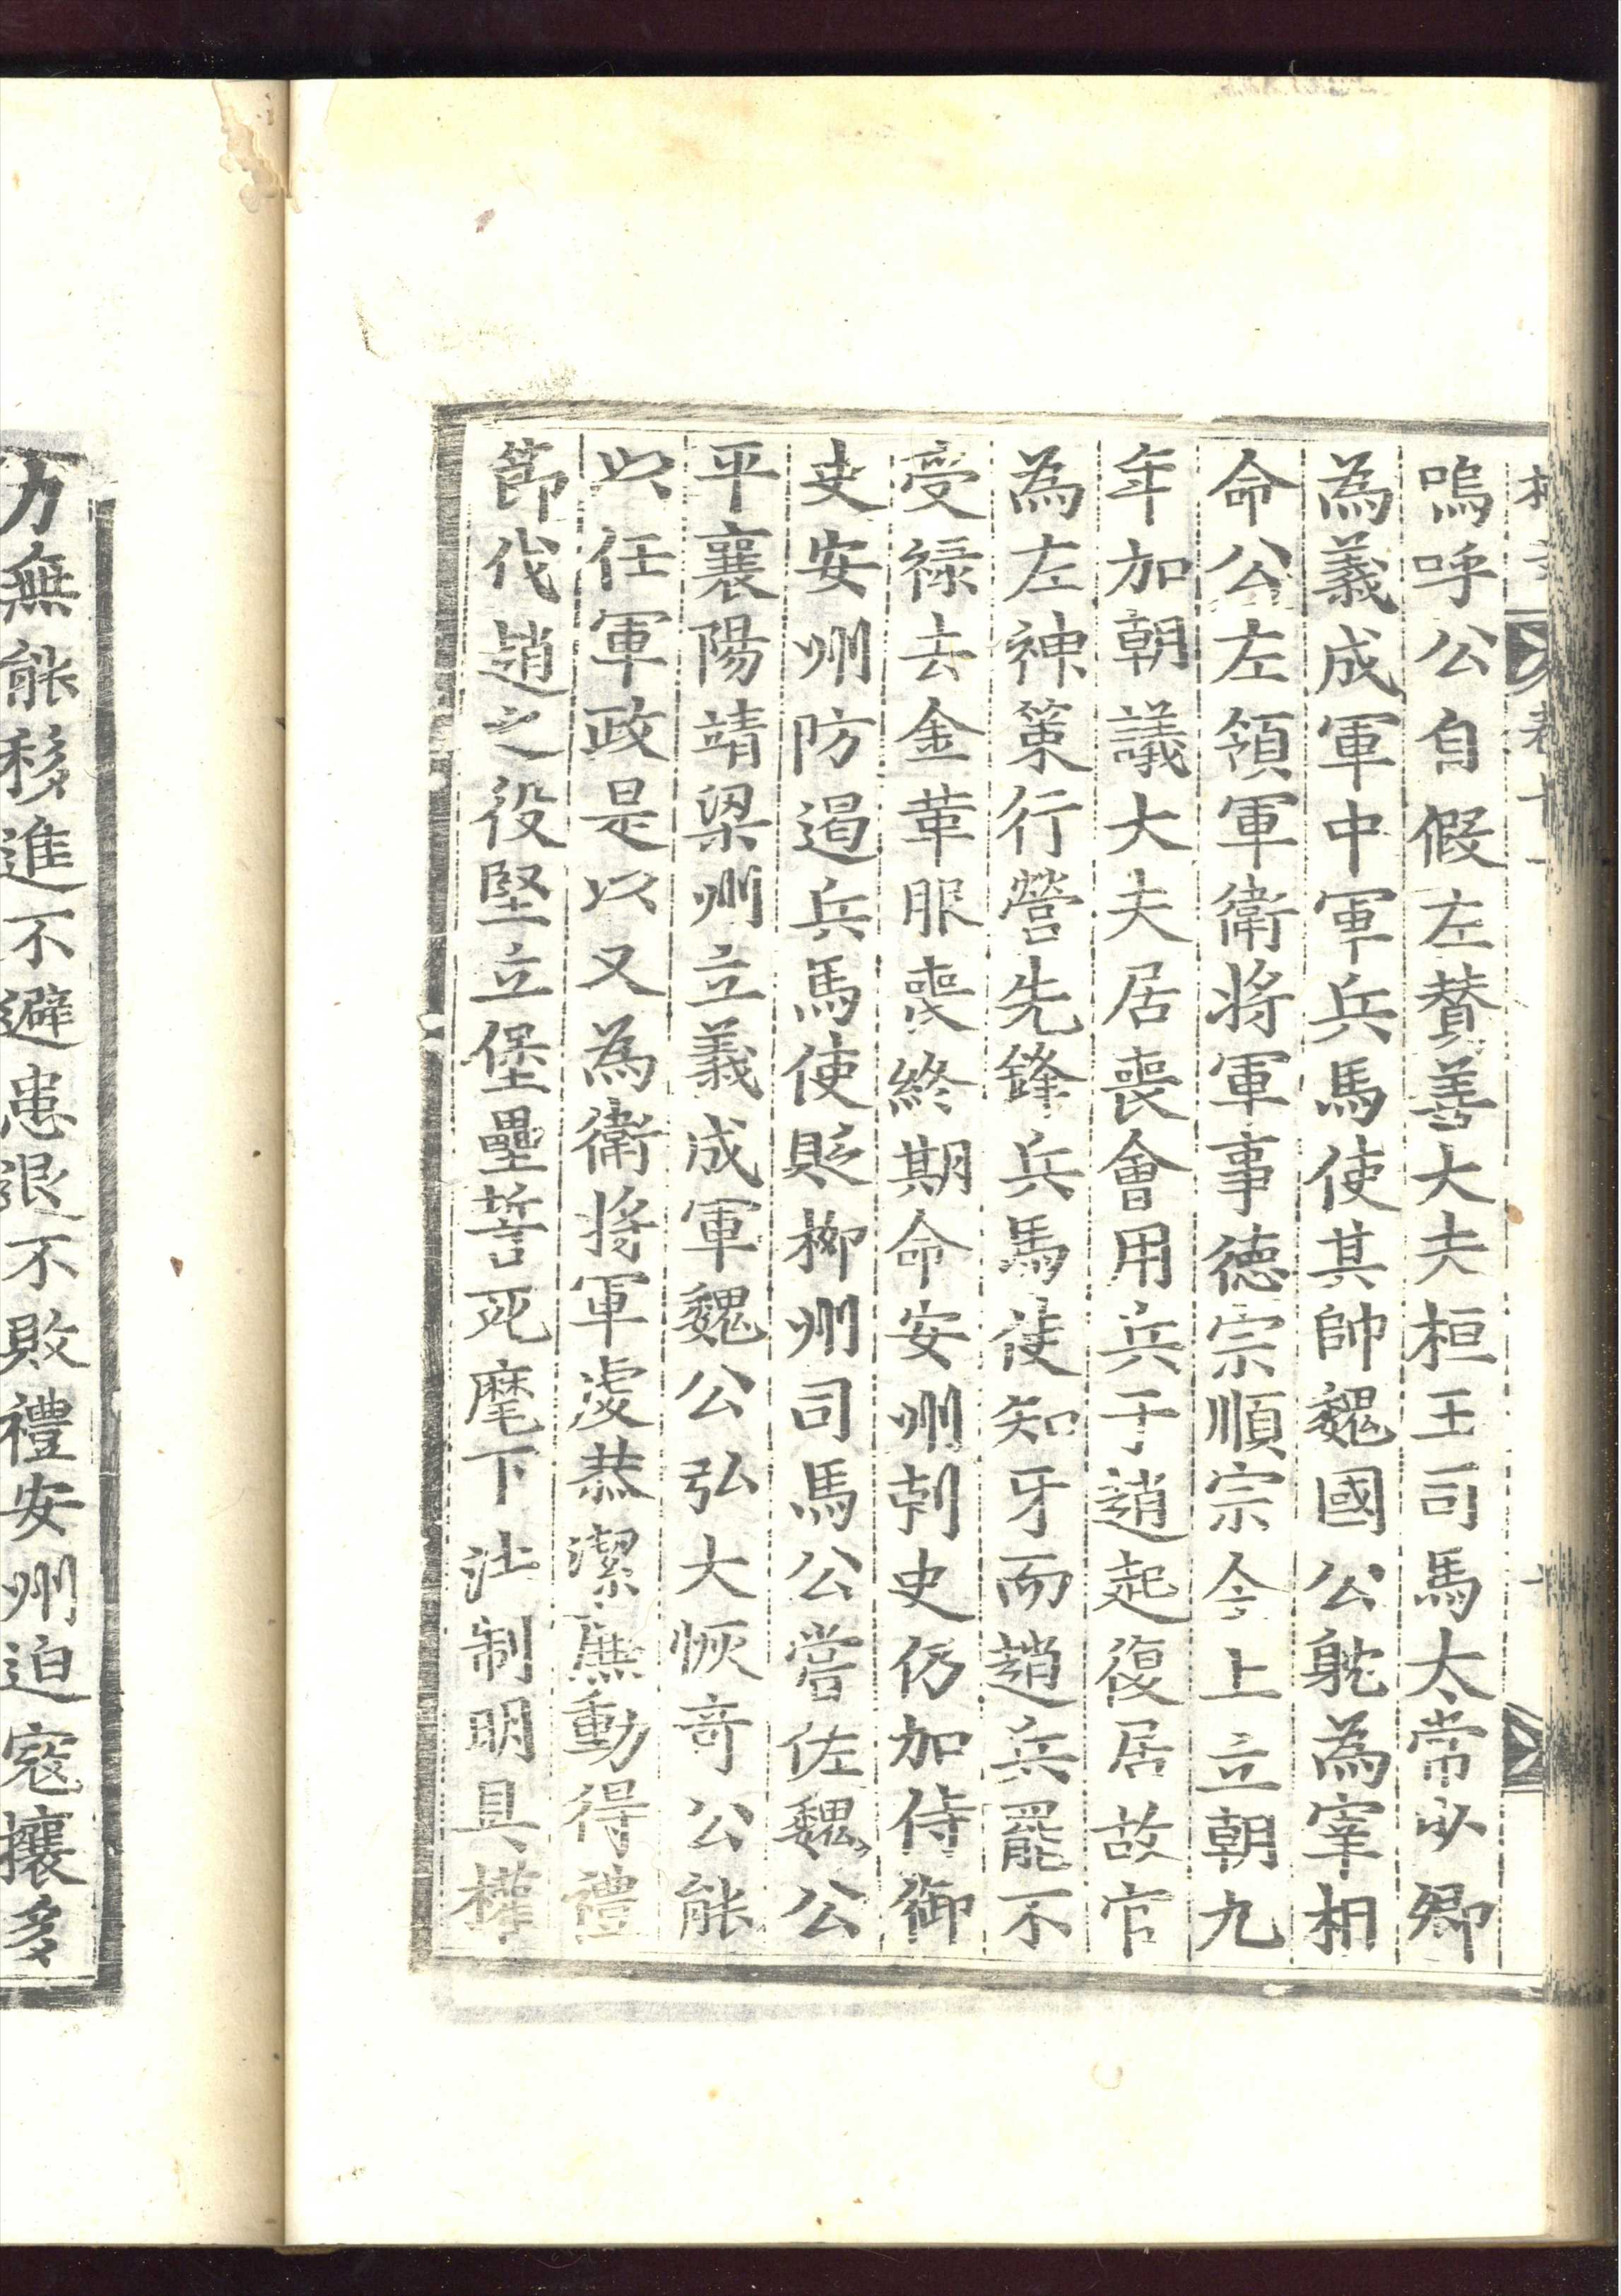 嗚呼公自假左賛善大夫桓王司馬太常少卿
為義成軍中軍兵馬使其帥魏國公躭為宰相
命公左領軍衛將軍事德宗順宗今上立朝九
年加朝議大夫居喪會用兵于趙起復居故官
為左神策行營先鋒兵馬使知牙而趙兵罷不
受禄去金革服喪終期命安州刺史仍加侍御
史安州防遏兵馬使貶柳州司馬公嘗佐魏公
平襄陽靖梁州立義成軍魏公弘大恢奇公能
以任軍政是以又為衛將軍虔恭潔廉動得禮
節伐趙之役堅立堡壘誓死麾下法制明具權
力無能移進不避患退不敗禮安州迫寇攘多